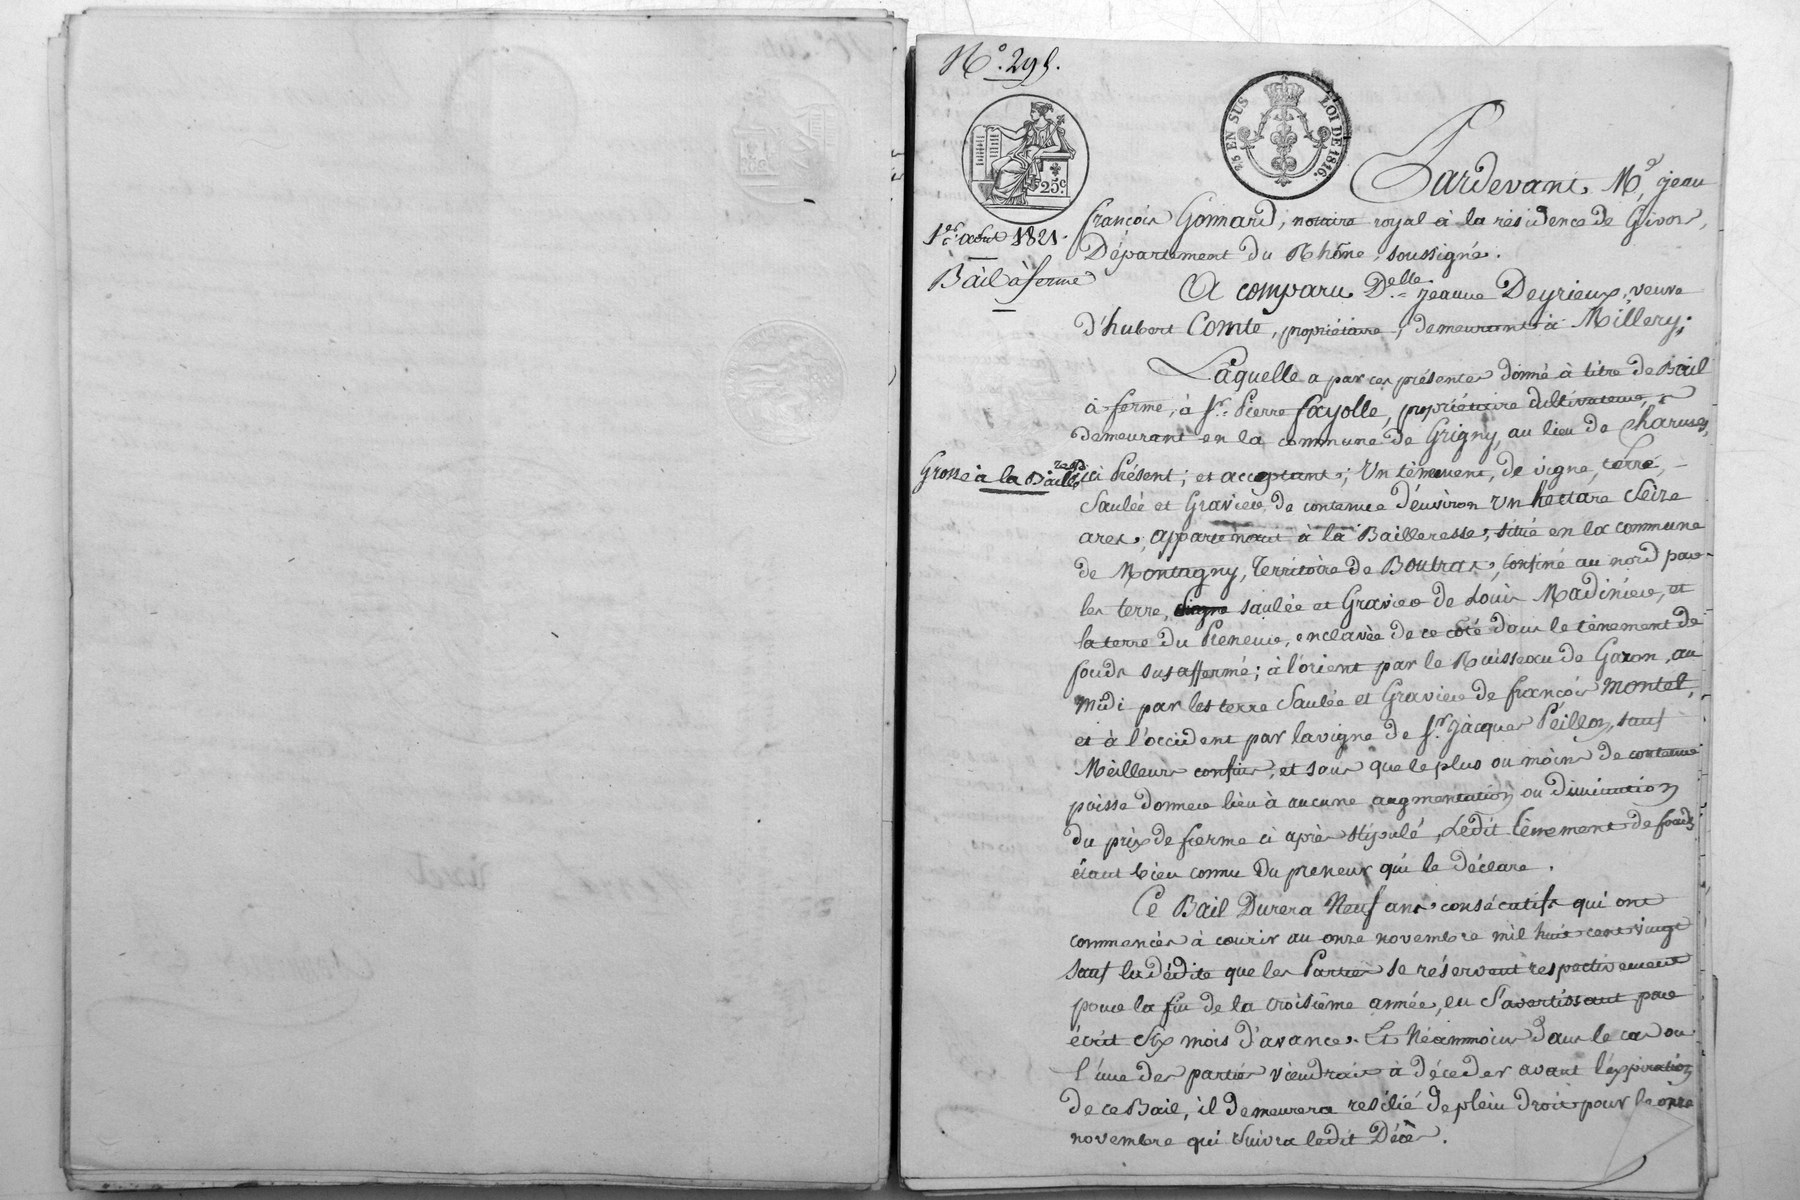 N.° 295.
25 EN SUS LOI DE 1816.
25.c
1.er août 1821.
Bail à ferme
Pardevant M.e jean
françois Gonnard, notaire royal à la résidence de Givors,
Département du Rhône, soussigné.
A comparu D.elle jeanne Deyrieux, veuve
d'hubert Comte, propriétaire, demeurant à Millery;
Laquelle a par ces présentes donné à titre de Bail
à ferme, à S.r Pierre fayolle, propriétaire cultivateur,
demeurant en la commune de Grigny, au lieu de
Grosse à la Bailleresse
ici Présent; et acceptant; Un tènement, de vigne, terre,
Saulée et Gravier, de contenue d'environ Un hectare Seize
ares, appartenant à la Bailleresse, situé en la commune
de Montagny, Territoire de Boutras, confiné au nord par
les terre, saulée et Gravier de Louis Madinier, et
la terre du Preneur, enclavée de ce côté dans le tènement de
fonds susaffermé; à l'orient par le Ruisseau de Garon, au
midi par les terre Saulée et Gravier de françois Montel,
et à l'occident par la vigne de S.r Jacques Peillon, sauf
Meilleurs confins, et sans que le plus ou moins de contenue
puisse donner lieu à aucune augmentation ou diminution
du prix de ferme ci après stipulé, Ledit tènement de fonds
étant bien connu du preneur qui le déclare.
Ce Bail Durera Neuf ans consécutifs qui ont
commencés à courir au onze novembre mil huit cent vingt
sauf la dédite que les Parties se réservent respectivement
pour la fin de la troisième année, en S'avertissant par
écrit Six mois d'avance. Et Néanmoins dans le cas ou
l'une des parties viendrait à décéder avant l'expiration
de ce Bail, il demeurera resilié de plein droit pour le onze
novembre qui Suivra ledit Décès.